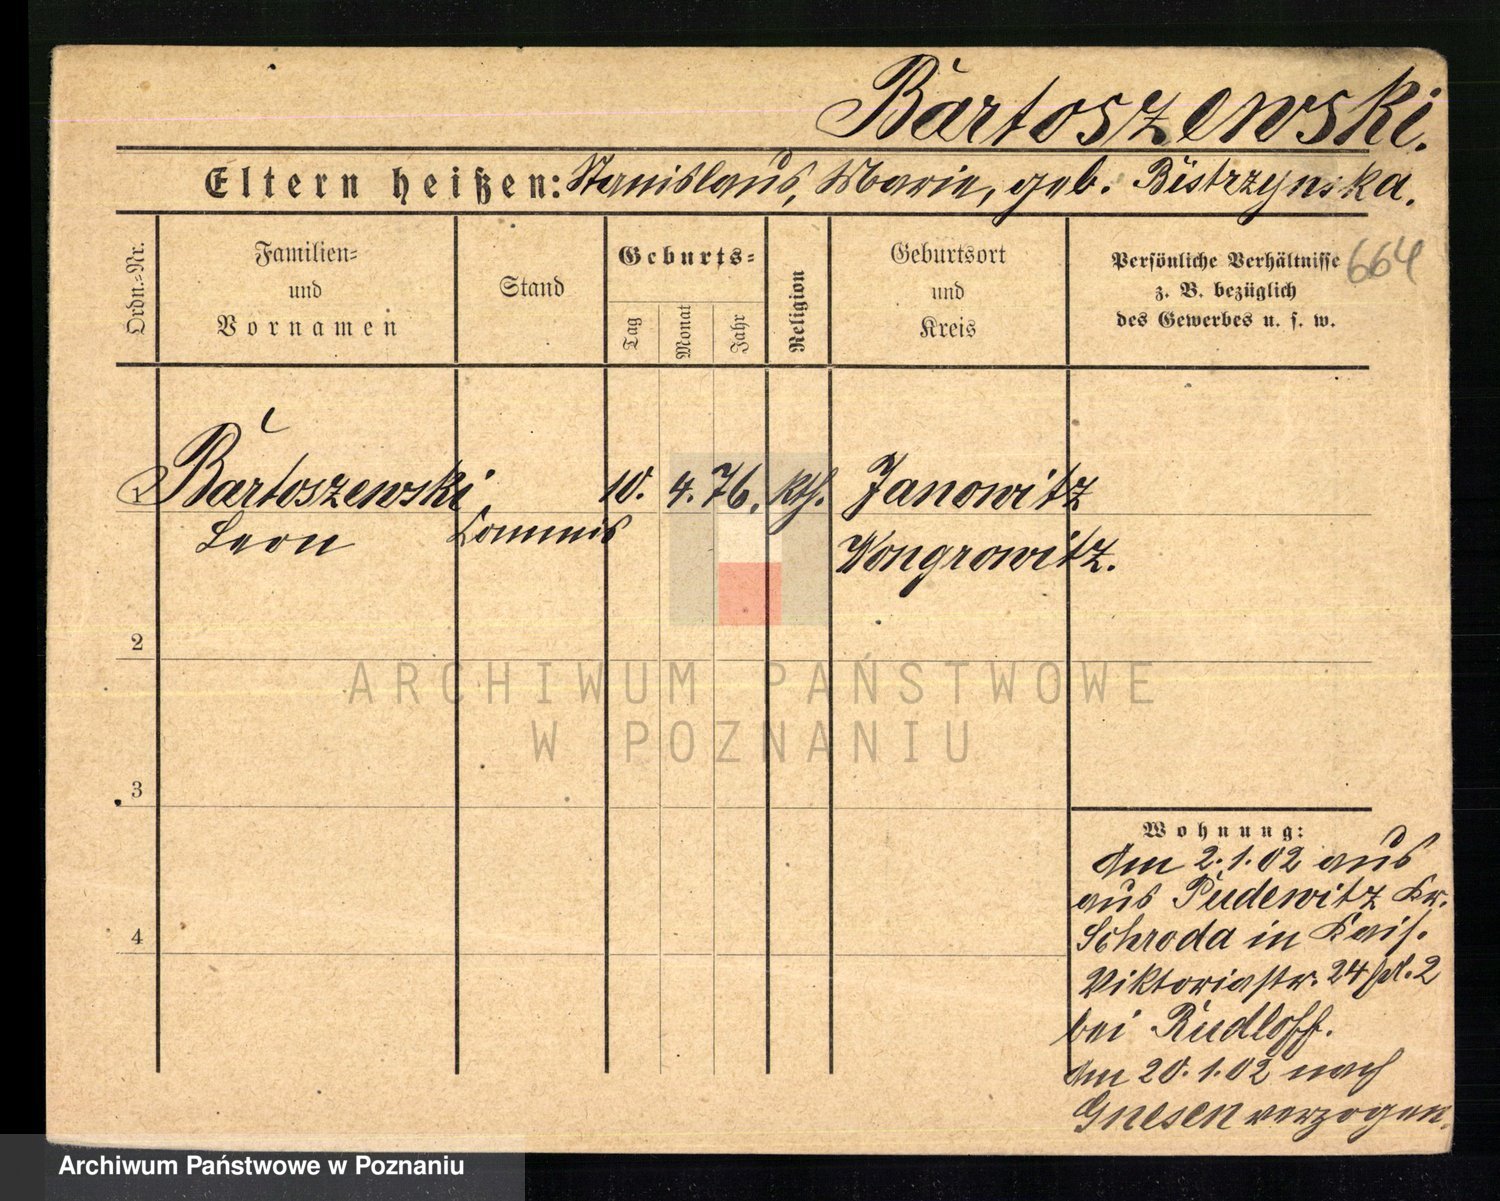 Bartoszewski.
Eltern heißen: Stanislaus, Marie, geb. Bistrzynska.
Ordn.-Nr.
Familien- und Vornamen
Stand
Geburts-
Tag
Monat
Jahr
Religion
Geburtsort und Kreis
Persönliche Verhältnisse
z. B. bezüglich
des Gewerbes u. s. w.
664
1 Bartoszewski 10. 4. 76. kth. Janowitz
Leon Commis Wongrowitz.
2
ARCHIWUM PAŃSTWOWE
W POZNANIU
3
Wohnung:
Am 2.1.02 aus
aus Pudewitz Kr.
4
Schroda in Kais.
Viktoriastr. 24 2
bei Rudloff.
Am 20.1.02 nach
Gnesen verzogen.
Archiwum Państwowe w Poznaniu